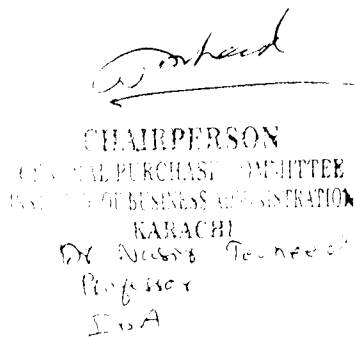 CHAIRPERSON
CENTRAL PURCHASE COMMITTEE
INSTITUTE OF BUSINESS ADMINISTRATION
KARACHI
Dr
Professor
IBA